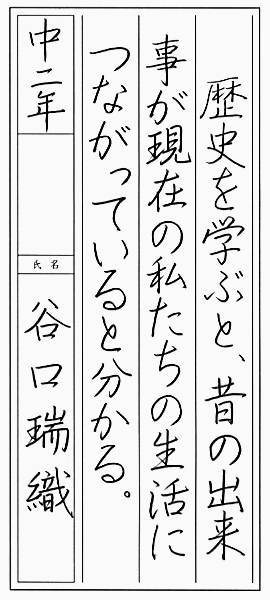 歴史を学ぶと、昔の出来
事が現在の私たちの生活に
つながっていると分かる。
中二年
氏名
谷口瑞織